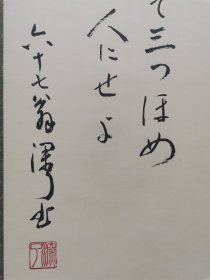 て三つほめ
人にせよ
六十七翁 書